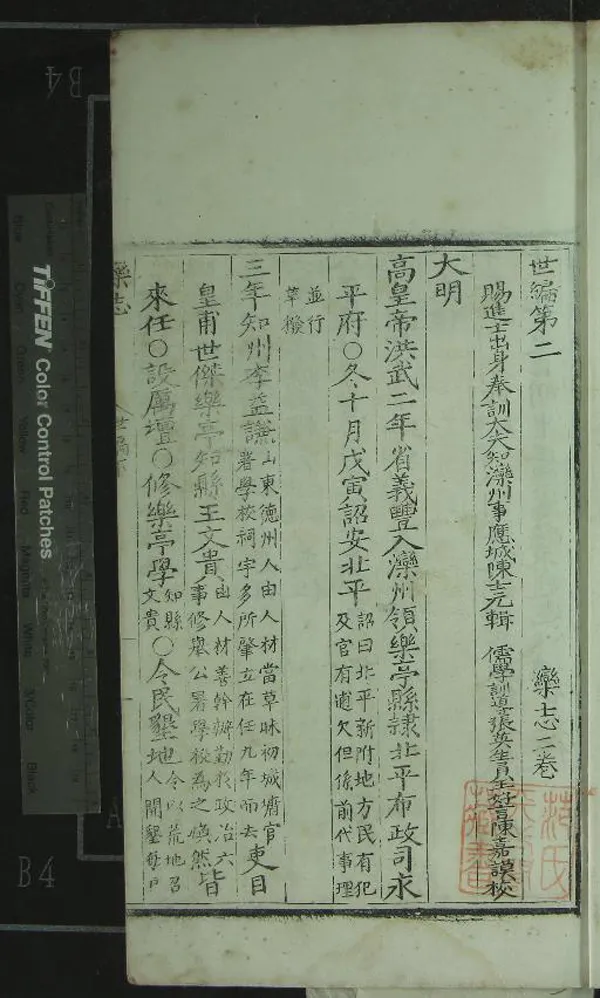 世編第二 欒志二卷
賜進士出身奉訓大夫知灤州事應城陳士元輯 儒學訓導張英生員王世官陳嘉謨校
大明
高皇帝洪武二年省義豐入灤州領樂亭縣隷北平布政司永
平府○冬十月戊寅詔安北平
詔曰北平新附地方民有犯
及官有逋欠但係前代事理
並行
革撥
三年知州李益謙
山東德州人由人材當草昧初城墉官
署學校祠宇多所肇立在任九年而去
吏目
皇甫世傑樂亭知縣王文貴
由人材善幹辦勤政治六
事修舉公署學校為之煥然
皆
來任○設厲壇○修樂亭學
知縣
文貴
○令民墾地
令以荒地召
人開墾每戶
欒志
世編
TIFFEN Color Control Patches
B4
B4